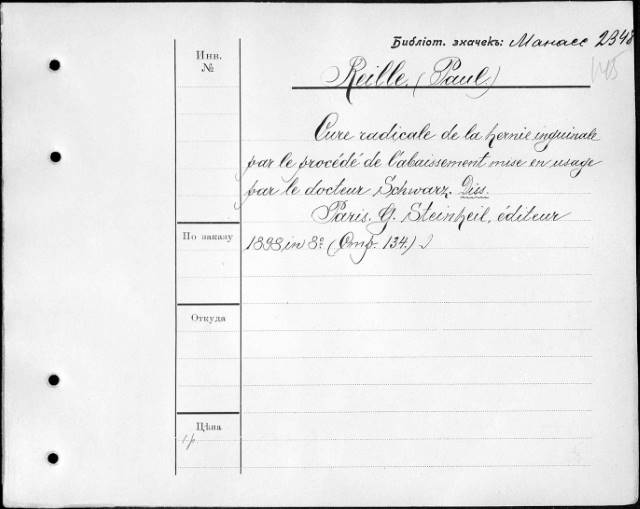 Библіот. значекъ: Манасс 2348
145
Инв.
№
Reille (Paul)
Cure radicale de la hernie inguinale
par le procédé de l'abaissement mise en usage
par le docteur Schwarz. Diss.
Paris. G. Steinheil, éditeur
По заказу
1898, in 8º (Стр. 134.)
Откуда
Цѣна
1 р